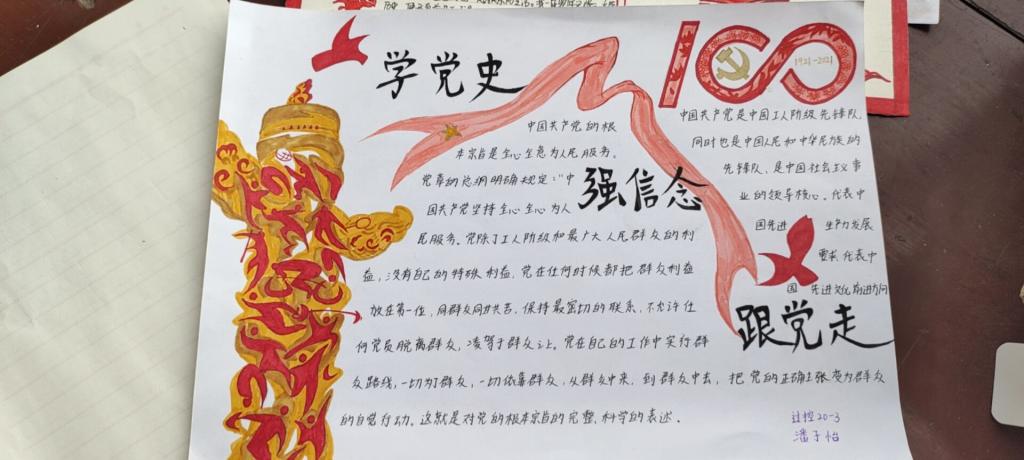 学党史
100
1921-2021
中国共产党的根
本宗旨是全心全意为人民服务。
党章的总纲明确规定："中
国共产党坚持全心全意为人
民服务。党除了工人阶级和最广大人民群众的利
益，没有自己的特殊利益，党在任何时候都把群众利益
放在第一位，同群众同甘共苦，保持最密切的联系，不允许任
何党员脱离群众，凌驾于群众之上。党在自己的工作中实行群
众路线，一切为了群众，一切依靠群众，从群众中来，到群众中去，把党的正确主张变为群众
的自觉行动。这就是对党的根本宗旨的完整，科学的表述。
强信念
中国共产党是中国工人阶级先锋队，
同时也是中国人民和中华民族的
先锋队，是中国社会主义事
业的领导核心。代表中
国先进 生产力发展
要求 代表中
国 先进文化前进方向
跟党走
过控20-3
潘子怡